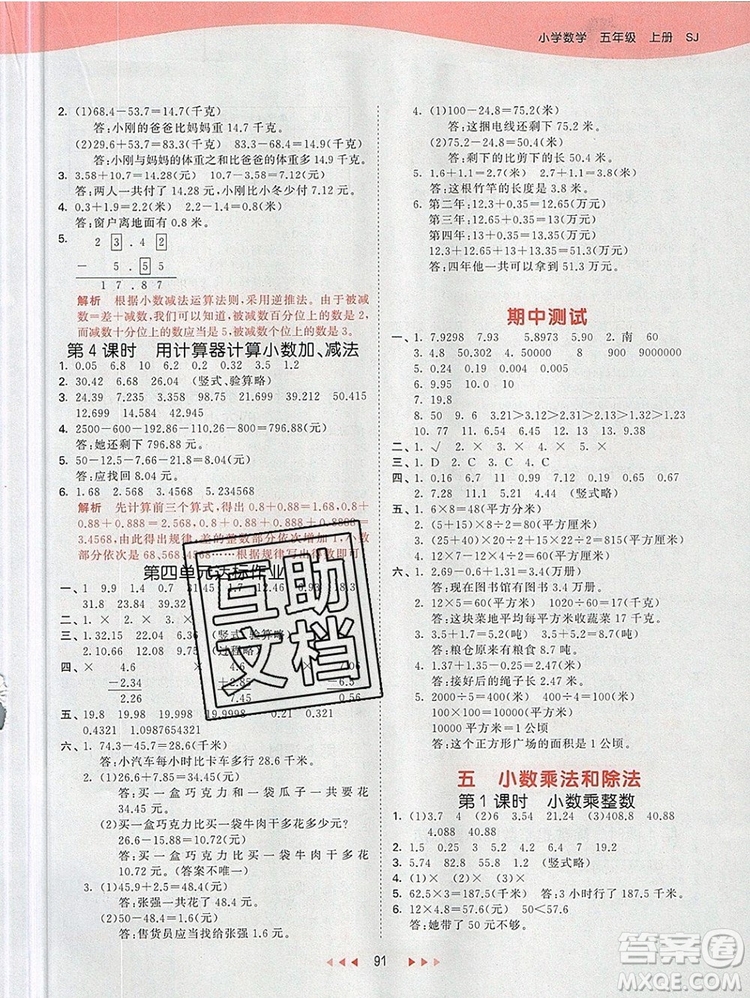 小学数学 五年级 上册 SJ
2. (1)68.4-53.7=14.7(千克)
答:小刚的爸爸比妈妈重 14.7 千克。
(2)29.6+53.7=83.3(千克) 83.3-68.4=14.9(千克)
答:小刚与妈妈的体重之和比爸爸的体重多 14.9 千克。
3. 3.58+10.7=14.28(元) 10.7-3.58=7.12(元)
答:两人一共付了 14.28 元,小东比小明多付 7.12 元。
4. 0.3+1.9=2.2(米) 2.2-1.4=0.8(米)
答:窗户离地面有 0.8 米。
5.
2 3 . 4 2
- 5 . 5 5
1 7 . 8 7
解析 根据小数减法运算法则,采用逆推法。由被减
数=差+减数,我们可以知道,被减数百分位上的数是 2,
而减数十分位上的数应当是 5,被减数个位上的数是 3。
第 4 课时 用计算器计算小数加、减法
1. 0.05 6.8 10 6.2 0.34 0.4
2. 30.42 6.68 26.66 (竖式、验算略)
3. 24.39 7.235 38.34 17.76 9.135 1.345
12.692 14.289 42.945
4. 2500-600-192.86-110.26-800=796.88(元)
答:她还剩下 796.88 元。
5. 50-12.5-7.66-21.8=8.04(元)
答:应找回 8.04 元。
6. 1.68 2.568 3.4568 5.234568
解析 先计算前三个算式,得出 0.8+0.88=1.68,0.8+
0.88+0.888=2.568,0.8+0.88+0.888+0.8888=
3.4568,由此得出规律,差的整数部分依次是
部分依次为 68,568,4568……根据规律,得出得数即可
第四单元达标作业
一、1. 9.9 1.4 31.24 31.7
31.82 23.94 0.9 0.58
二、1. × 2. × 3. √ 4. ×
三、1. 1.13 32.15 22.04 6.36 (竖式、验算略)
2. 10.66 8.77 (过程略)
四、 × 4.6 × 4.6 ×
-2.34
2.26 7.45 0.56
五、19.8 19.98 19.998 19.9998
0.4321 1.0987654321
六、1. 74.3-45.7=28.6(千米)
答:小汽车每小时比卡车多行 28.6 千米。
2. (1)26.6+7.85=34.45(元)
答:买一盒巧克力和一袋瓜子一共要花
34.45 元。
(2)买一盒巧克力比买一袋牛肉干多花多少
元? 26.6-15.88=10.72(元)
答:买一盒巧克力比买一袋牛肉干多花
10.72 元。(答案不唯一)
3. (1)22+26.4=48.4(元)
答:张强一共花了 48.4 元。
(2)50-48.4=1.6(元)
答:售货员应找给张强 1.6 元。
4. (1)100-24.8=75.2(米)
答:这捆电线还剩下 75.2 米。
(2)75.2-24.8=50.4(米)
答:剩下的比剪下的长 50.4 米。
5. 1.6+1.1=2.7(米) 2.7+1.1=3.8(米)
答:这根竹竿的长度是 3.8 米。
6. 第二年:12.3+0.35=12.65(万元)
第三年:12.65+0.35=13(万元)
第四年:13+0.35=13.35(万元)
12.3+12.65+13+13.35=51.3(万元)
答:四年他一共可以拿到 51.3 万元。
期中测试
一、1. 7.9298 7.93 5.8973 5.90 2. 南 60
3. 4.0.8 500000 50000 4. 0.38 0.380
5. 0.24 0.19 0.005 4.116
6. 9.95 10.05
7. 19.8
8. 50 9. 6 12 3.21>3.12>2.31>2.13>1.32
10. 77 11. 6.54 4.45 12. 19 13. 0.86
二、1. √ 2. × 3. × 4. × 5. ×
三、1. D 2. C 3. B 4. B 5. A
四、1. 0.16 0.11 0.04 0.99 1.12 7.67 0.19 0.65
2. 7.28 11.1 5.27 9.45 (竖式略)
五、1. 6×8=48(平方分米)
2. (5+15)×28÷2=280(平方厘米)
3. (25+40)×32÷2=1040(平方厘米)
4. 12×10÷2=60(平方厘米)
六、1. 3.2-1.2+0.6=2.6(万册)
答:现在图书馆有图书 2.6 万册。
2. 12×5=60(平方米) 10×60=600(千克)
答:这块菜地平均每次可以收蔬菜 600 千克。
3. 3.5+1.2+1.7=6.4(吨)
答:粮仓原来有粮食 6.4 吨。
4. 1.37+1.35-0.18=2.54(米)
答:接好后的绳子长 2.54 米。
5. 2000÷5=400(米) 400÷4=100(米)
100×100=10000(平方米)
10000 平方米=1 公顷
答:这个正方形广场的面积是 1 公顷。
五 小数乘法和除法
第 1 课时 小数乘整数
1. (1)3.7 4 (2)6 3.54 21.24 (3)408.8 40.88
4.088 40.88
2. 1.5 1.2 0.63 2.4 0.36 0
3. 5.74 82.8 55.8 1.29 (竖式略)
4. (1)× (2)× (3)×
5. 62.5×3=187.5(千米) 答:3 小时行了 187.5 千米。
6. 12×4.8=57.6(元) 50<57.6
答:她带的钱不够。
91
互助
文档
答案圈
MXQE.COM